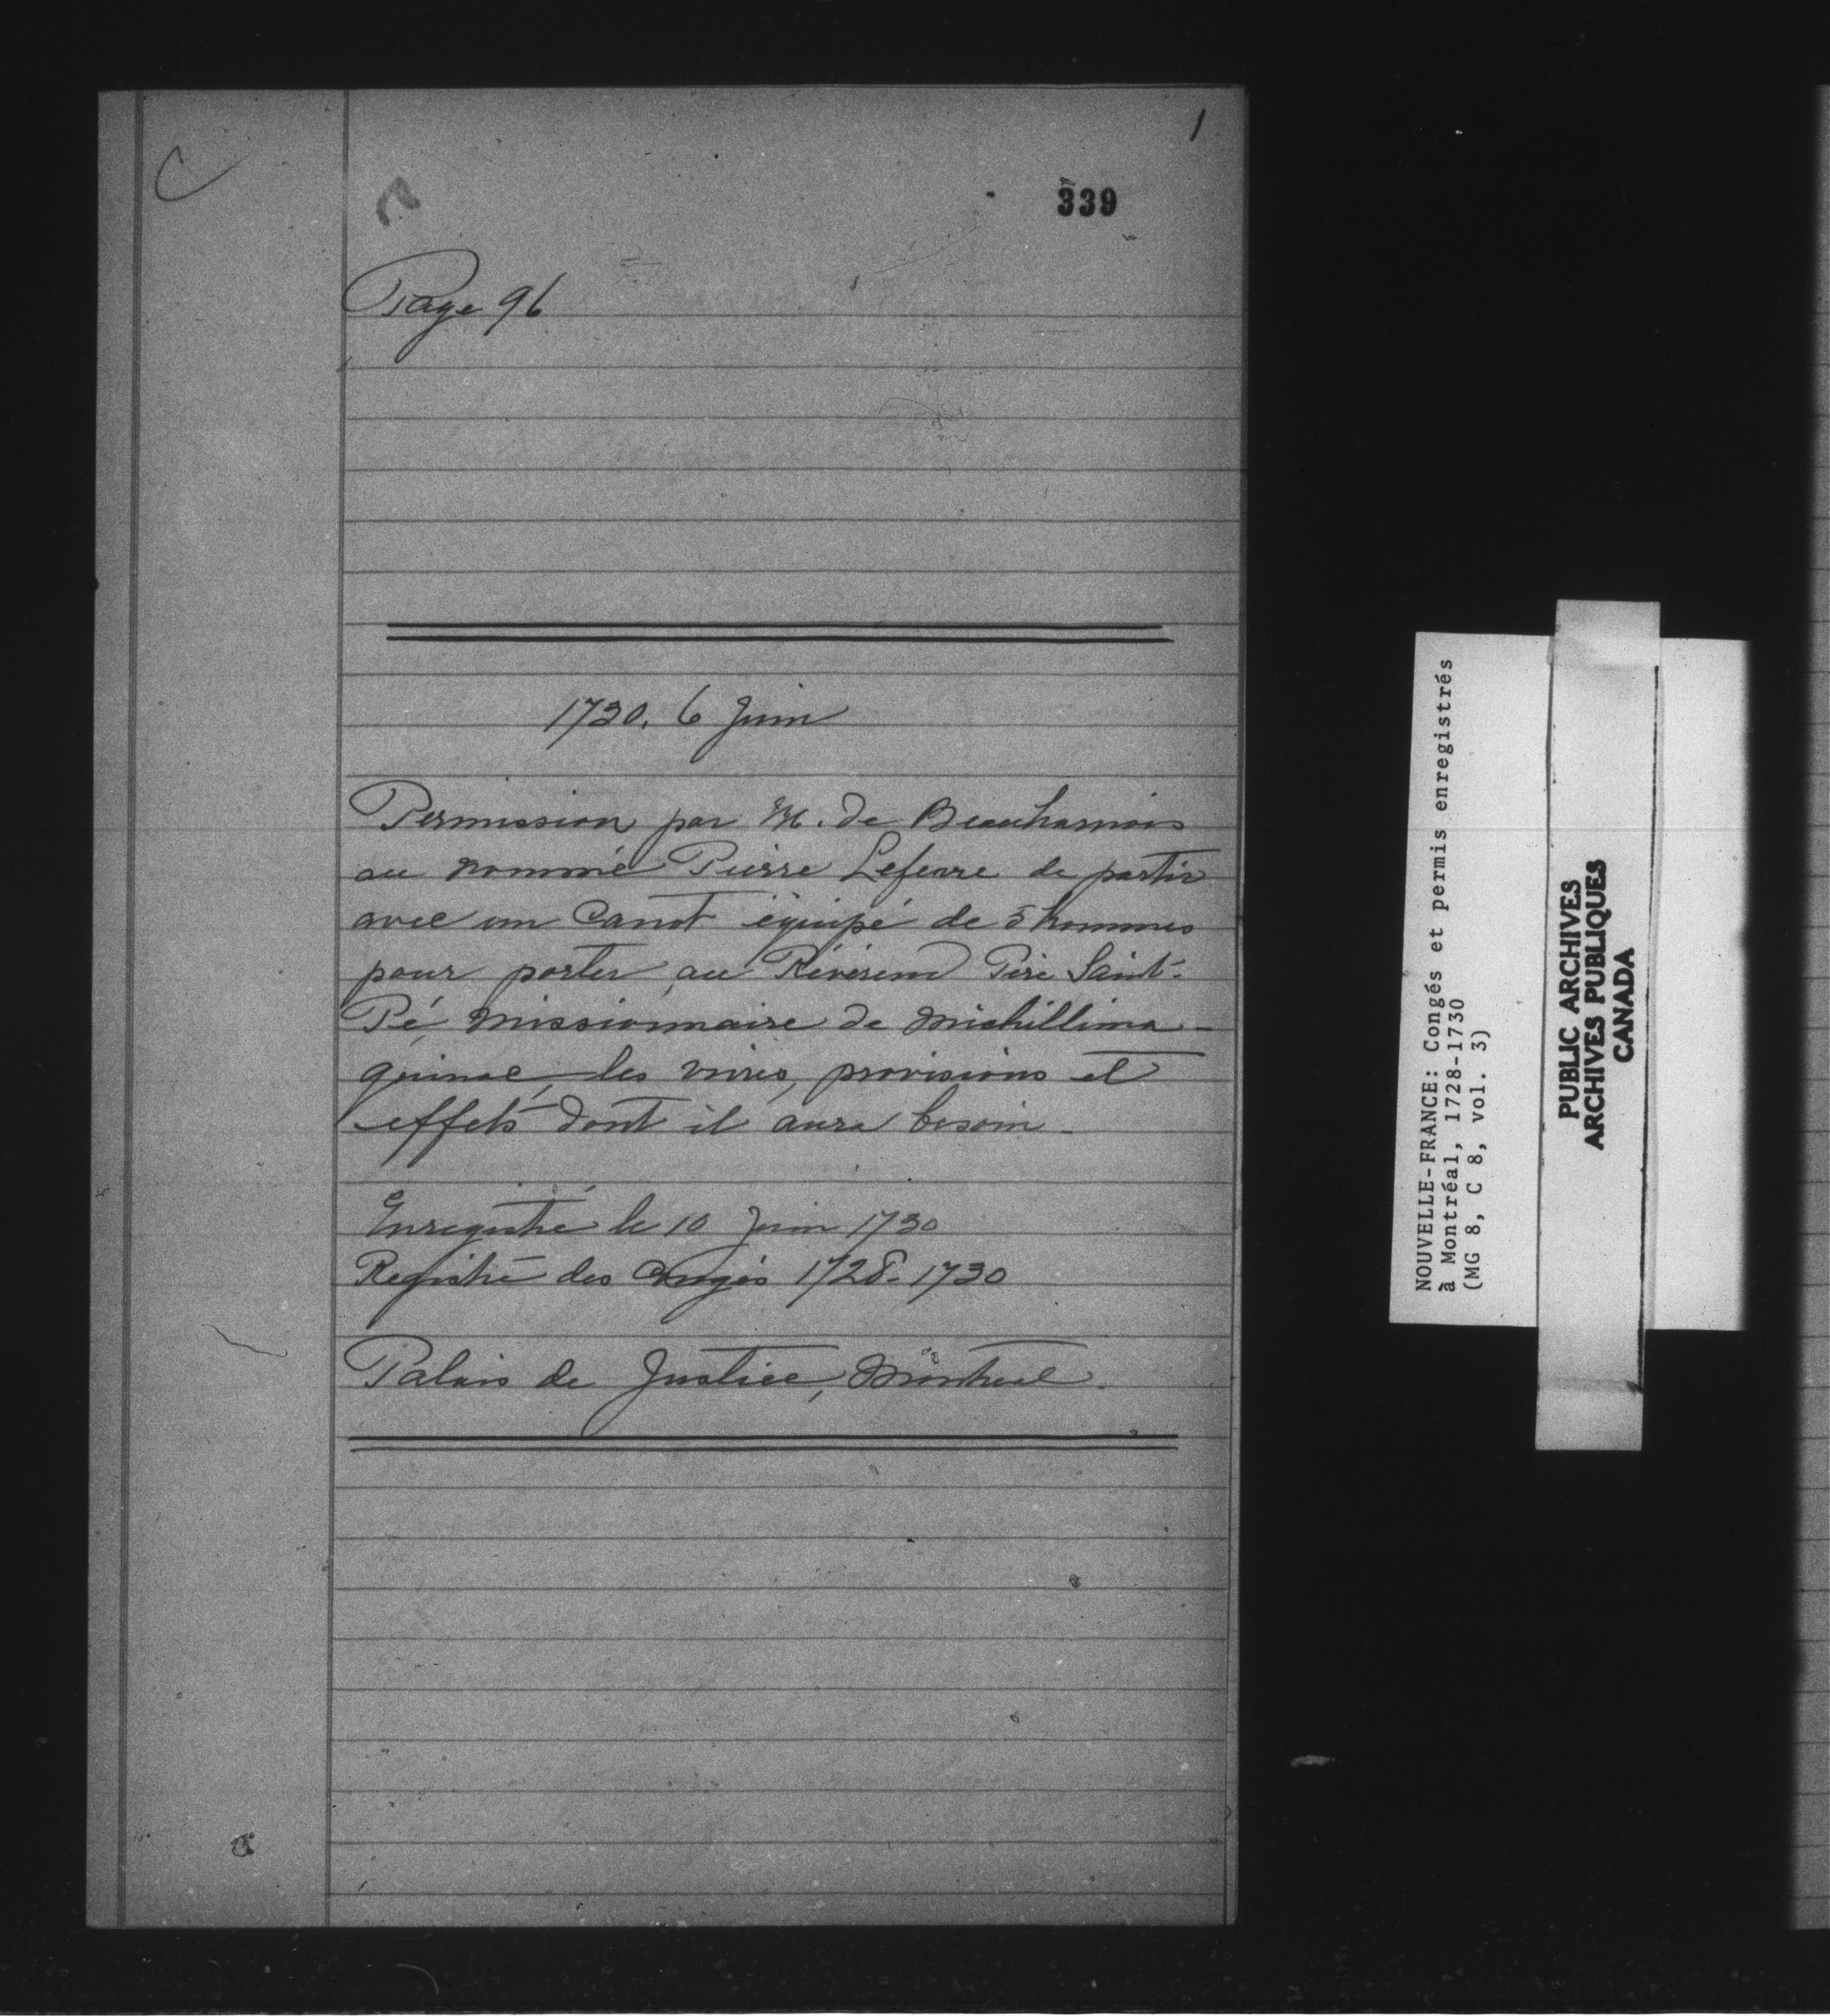 1
339
Page 96
1730. 6 Juin
Permission par M. de Beauharnois
au nommé Pierre Lefevre de partir
avec un Canot équipé de 5 hommes
pour porter au Révérend Père Saint-
Pé, missionnaire de Michillima-
quinac, les vivres, provisions et
effets dont il aura besoin.
Enregistré le 10 Juin 1730
Registre des Congés 1728-1730
Palais de Justice, Montreal.
NOUVELLE-FRANCE: Congés et permis enregistrés
à Montréal, 1728-1730
(MG 8, C 8, vol. 3)
PUBLIC ARCHIVES
ARCHIVES PUBLIQUES
CANADA